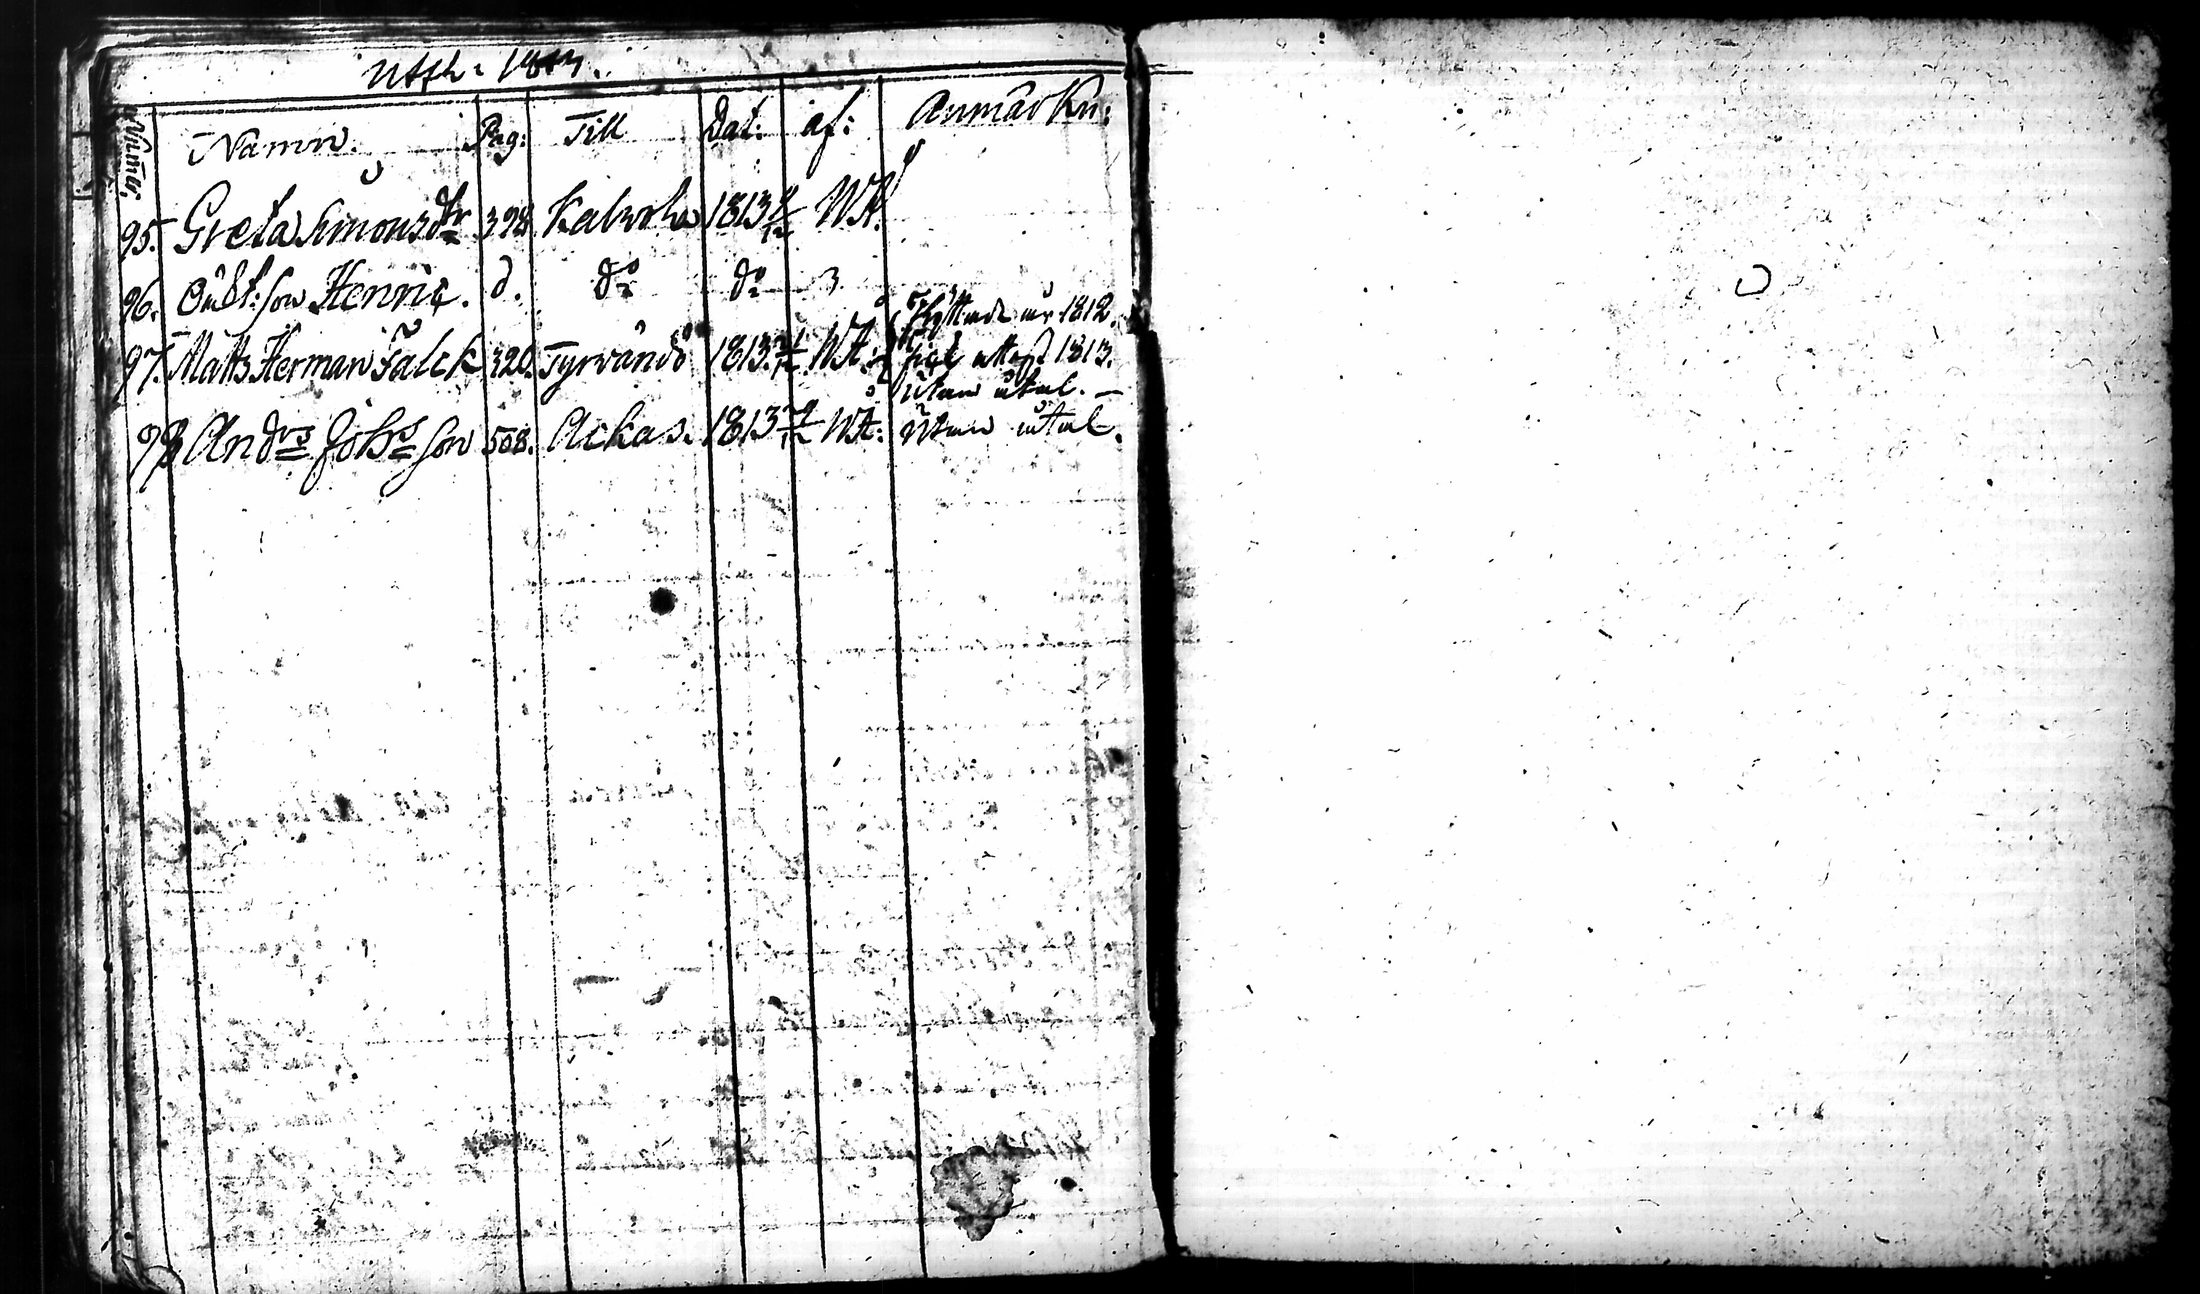 Utfl: 1813.
Numr: Namn. Pag: Till Dat: af: Anmärkn:
95. Greta Simonsdr 398 Kalvola 1813 WA.
96. Oä.st: son Henric. d. do do
Flyttade ur 1812.
97. Matts Herman Falck 320. Tyrvändö 1813. WA: fick attest 1813.
utan uttal. —
98 Andrs Johsson 508. Ackas. 1813 WA: utan uttal.